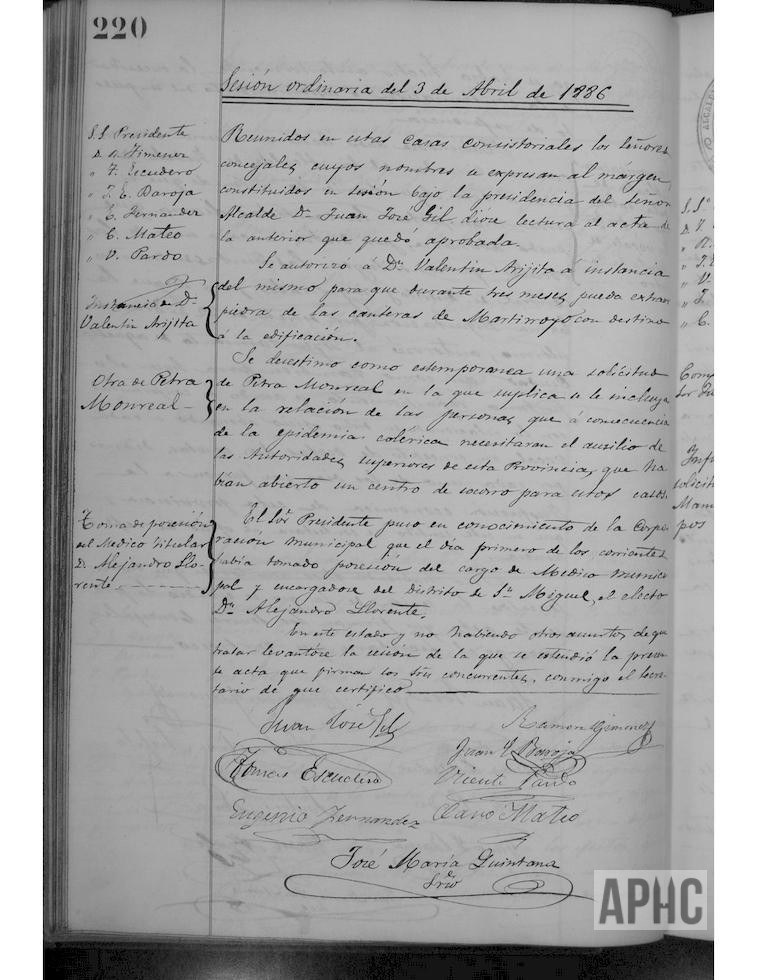 220
Sesión ordinaria del 3 de Abril de 1886
S.S. Presidente
D. R. Jimenez
" F. Escudero
" J. E. Baroja
" E. Fernandez
" C. Mateo
" V. Pardo
Reunidos en estas casas consistoriales los Señores
concejales cuyos nombres se expresan al márgen,
constituidos en sesión bajo la presidencia del Señor
Alcalde Dn. Juan José Gil, diose lectura al acta de
la anterior que quedó aprobada.
Instancia de Dn
Valentin Arijita
Se autorizó á Dn. Valentin Arijita á instancia
del mismo para que durante tres meses pueda extraer
piedra de las canteras de Martinroyo con destino
á la edificación.
Otra de Petra
Monreal —
Se desestimo como estemporanea una solicitud
de Petra Monreal en la que suplica se le incluya
en la relación de las personas que á consecuencia
de la epidemia colérica necesitaran el auxilio de
las Autoridades superiores de esta Provincia, que ha-
bían abierto un centro de socorro para estos casos.
Toma de posesión
del Medico titular
D. Alejandro Llo-
rente.
El Sor. Presidente puso en conocimiento de la Corpo-
ración municipal que el día primero de los corrientes
había tomado posesion del cargo de Medico munici-
pal y encargadose del distrito de Sn. Miguel, el electo
Dn. Alejandro Llorente.
En este estado y no habiendo otros asuntos de que
tratar levantóse la sesión de la que se estendió la presen-
te acta que firman los Sres concurrentes, conmigo el Secre-
tario de que certifico
Juan José Gil
Ramon Gimenez
Juan E. Baroja
Tomas Escudero
Vicente Pardo
Eugenio Fernandez
Cano Mateo
José María Quintana
Srio
S.Sº
D.
"
"
"
"
"
ALCALD
APHC